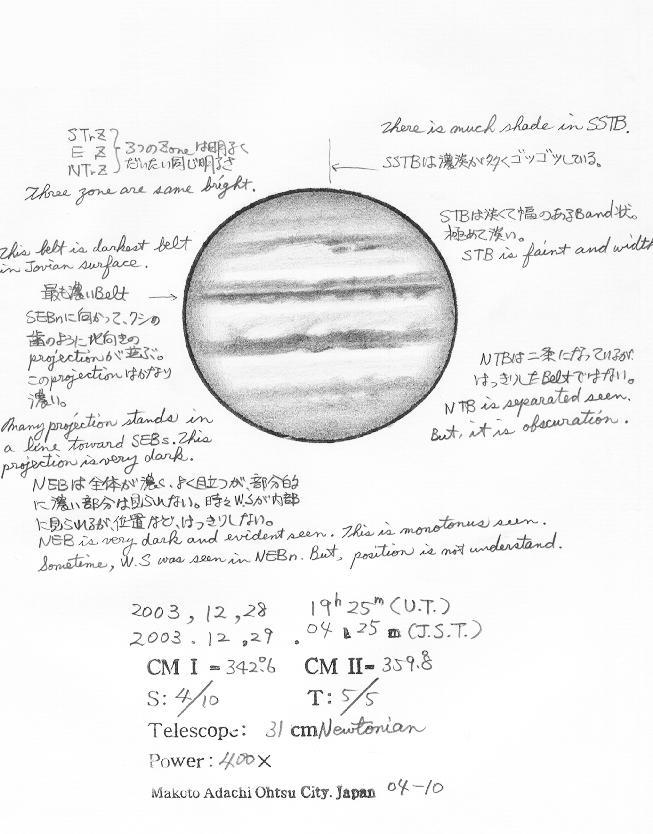 There is much shade in SSTB.
SSTBは濃淡が多くゴツゴツしている。
STrZ
E Z
NTrZ
3つのZoneは明るく
だいたい同じ明るさ
Three zone are same bright.
STBは淡くて幅のあるBand状。
極めて淡い。
STB is faint and width
This belt is darkest belt
in Jovian surface.
最も濃いBelt
SEBnに向かって、クシの
歯のように北向きの
projectionが並ぶ。
このprojectionはかなり
濃い。
Many projection stands in
a line toward SEBs. This
projection is very dark.
NTBは二条になっているが
はっきりしたBeltではない。
NTB is separated seen.
But, it is obscuration.
NEBは全体が濃く、よく目立つが、部分的
に濃い部分は見られない。時々W.Sが内部
に見られるが、位置など、はっきりしない。
NEB is very dark and evident seen. This is monotonus seen.
Sometime, W.S was seen in NEBn. But, position is not understand.
2003, 12, 28 19h 25m (U.T.)
2003. 12, 29. 04h 25m (J.S.T.)
CM I = 342.°6 CM II= 359.°8
S: 4/10 T: 5/5
Telescope: 31 cm Newtonian
Power: 400X
Makoto Adachi Ohtsu City. Japan 04-10